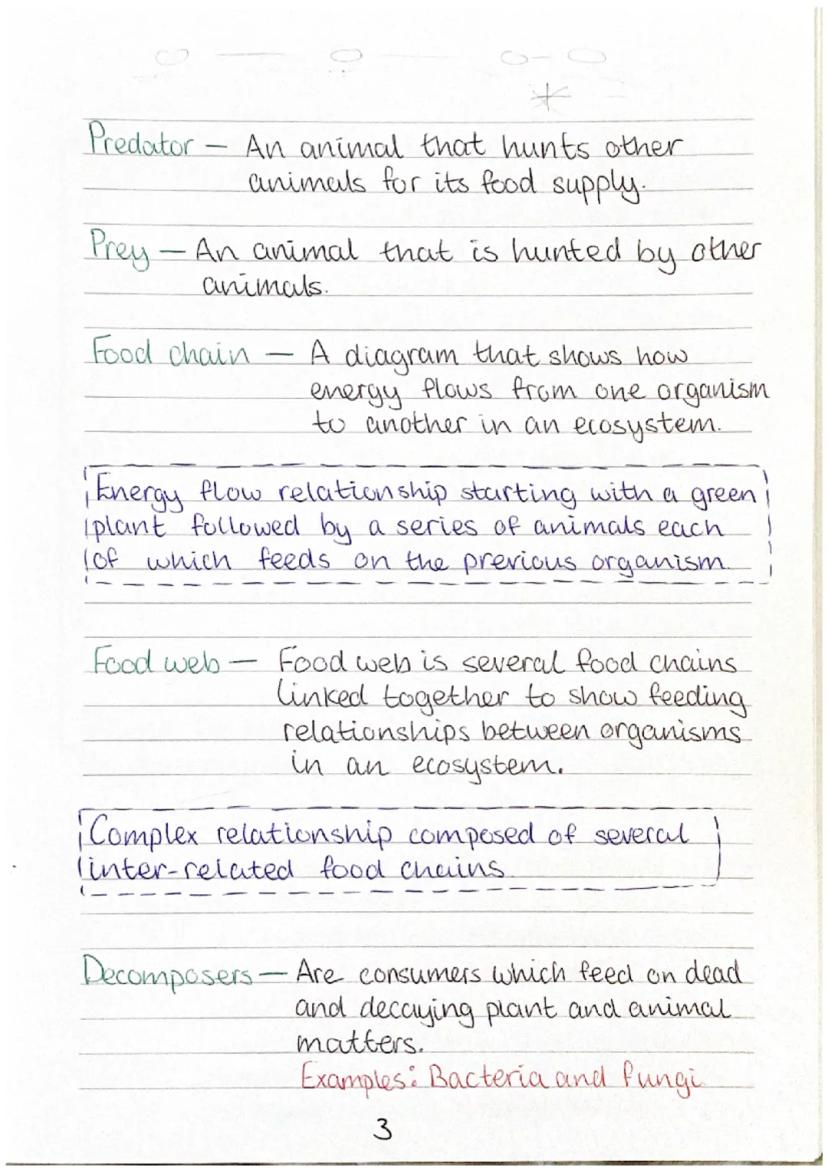 Predator — An animal that hunts other
animals for its food supply.
Prey — An animal that is hunted by other
animals.
Food chain — A diagram that shows how
energy flows from one organism
to another in an ecosystem.
Energy flow relationship starting with a green
plant followed by a series of animals each
of which feeds on the previous organism.
Food web — Food web is several food chains
linked together to show feeding
relationships between organisms
in an ecosystem.
Complex relationship composed of several
inter-related food chains.
Decomposers — Are consumers which feed on dead
and decaying plant and animal
matters.
Examples: Bacteria and fungi
3